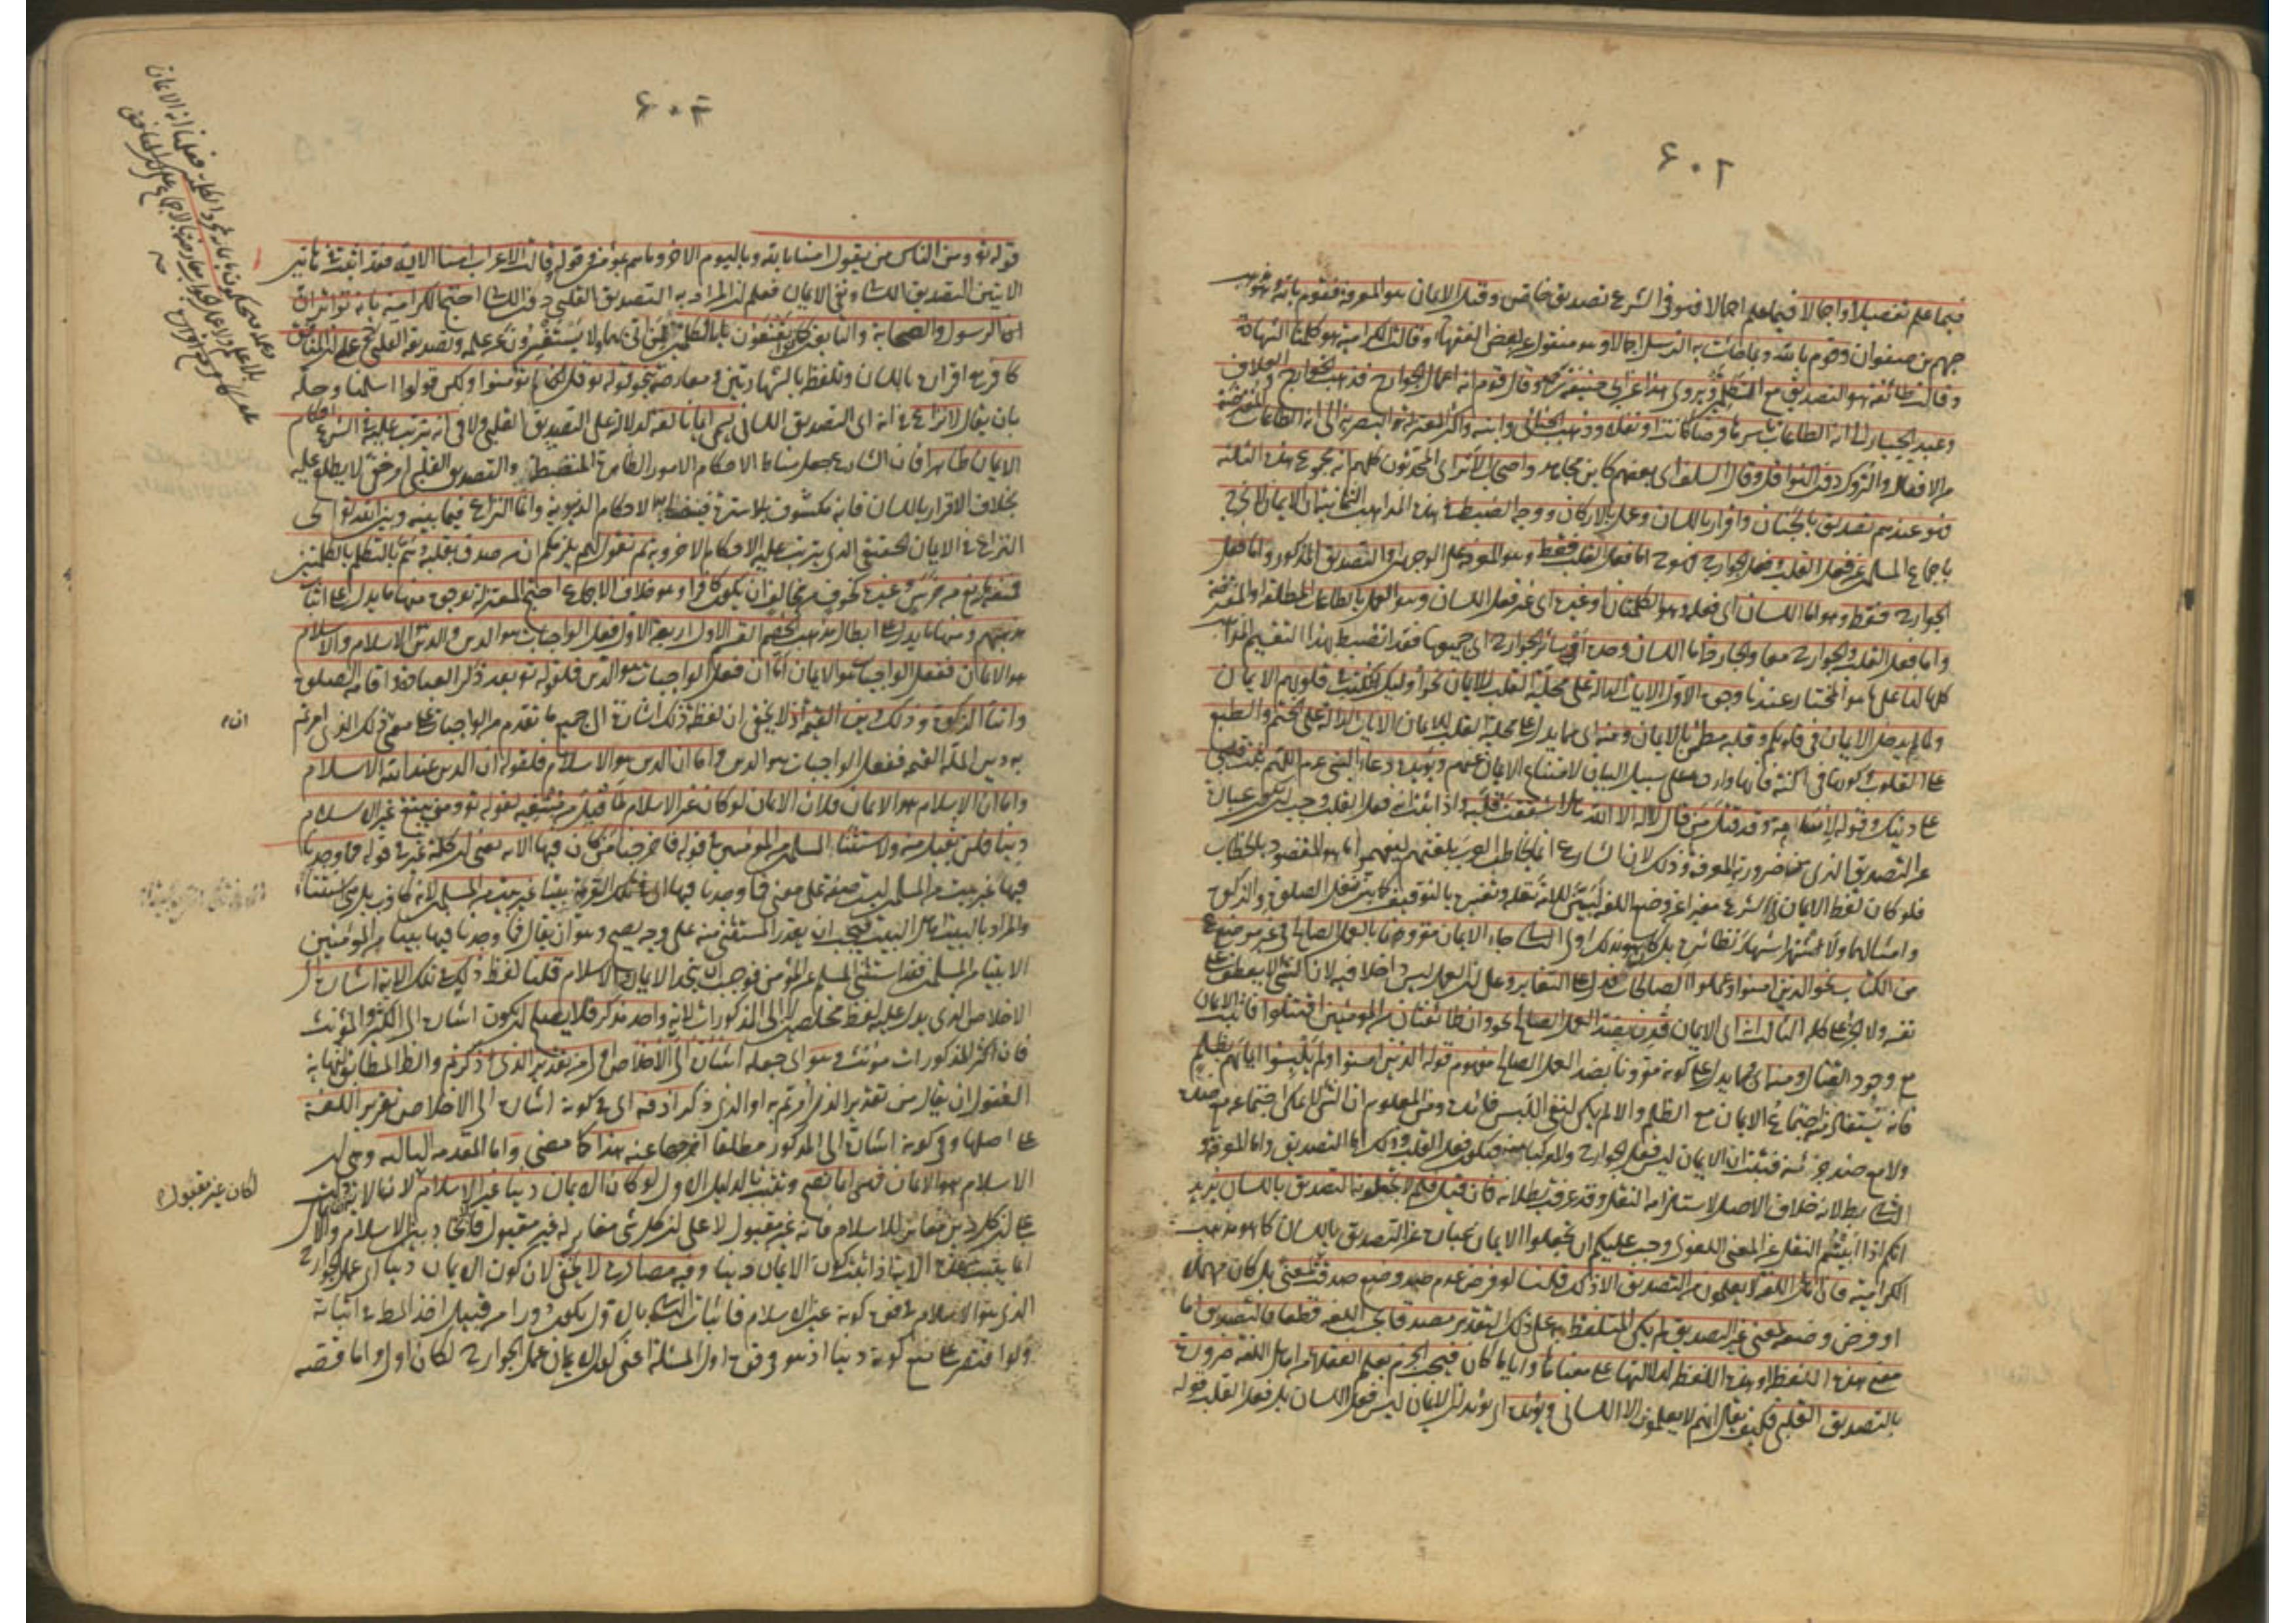 ٦٠٢
فيما علم تفصيلا واجمالا فيما علم اجمالا فهو في الشرع تصديق خاص وقيل الايمان هو المعرفة فقوم بالله وهو مذهب
جهم بن صفوان وقوم بالله وبما جاءت به الرسل اجمالا وهو منقول عن بعض الفقهاء وقالت الكرامية هو كلمتا الشهادة
وقالت طائفة هو التصديق مع الكلمتين ويروى هذا عن ابي حنيفة رح وقال قوم انه اعمال الجوارح فذهب الخوارج والعلاف
وعبد الجبار الى انه الطاعات باسرها فرضا كانت او نفلا وذهب الجبائي وابنه واكثر المعتزلة البصرية الى انه الطاعات المفترضة
من الافعال والتروك دون النوافل وقال السلف اى بعضهم كابن مجاهد واصحاب الاثر اى المحدثون كلهم انه مجموع هذه الثلثة
فهو عندهم تصديق بالجنان واقرار باللسان وعمل بالاركان ووجه الضبط في هذه المذاهب الثمانية ان الايمان لا يخرج
باجماع المسلمين عن فعل القلب وفعل الجوارح فهو ح اما فعل القلب فقط وهو المعرفة على الوجهين او التصديق المذكور واما فعل
الجوارح فقط وهو اما اللسان اى فعله وهو الكلمتان او غيره اى غير فعل اللسان وهو العمل بالطاعات المطلقة او المفترضة
واما فعل القلب والجوارح معا والجارحة اما اللسان وحده او سائر الجوارح اى جميعها فقد انضبط بهذا التقسيم المذاهب
كلها لنا على ما هو المختار عندنا وجوه الاول الايات الدالة على محلية القلب للايمان نحو اولئك كتب في قلوبهم الايمان
ولما يدخل الايمان في قلوبكم وقلبه مطمئن بالايمان ومنه اى مما يدل على محلية القلب للايمان الايات الدالة على الختم والطبع
على القلوب وكونها في اكنة فانها واردة على سبيل البيان لامتناع الايمان عنهم ويؤيده دعاء النبي عم اللهم ثبت قلبي
على دينك وقوله لاسامة وقد قتل من قال لا اله الا الله هلا شققت قلبه واذا ثبت انه فعل القلب وجب ان يكون عبارة
عن التصديق الذى من ضرورته المعرفة وذلك لان الشارع انما يخاطب العرب بلغتهم ليفهموا ما هو المقصود بالخطاب
فلو كان لفظ الايمان في الشرع مغيرا عن وضع اللغة لبين للامة نقله وتغييره بالتوقيف كما بين نقل الصلوة والزكوة
وامثالهما ولاشتهر اشتهار نظائره بل كان هو بذلك اولى الثاني جاء الايمان مقرونا بالعمل الصالح في غير موضع
من الكتاب نحو الذين امنوا وعملوا الصالحات فدل على التغاير وعلى ان العمل ليس داخلا فيه لان الشئ لا يعطف على
نفسه ولا الجزء على كله الثالث انه اى الايمان قرن بضد العمل الصالح نحو وان طائفتان من المؤمنين اقتتلوا فاثبت الايمان
مع وجود القتال ومنه اى مما يدل على كونه مقرونا بضد العمل الصالح مفهوم قوله الذين امنوا ولم يلبسوا ايمانهم بظلم
فانه يستفاد منه اجتماع الايمان مع الظلم والا لم يكن لنفي اللبس فائدة ومن المعلوم ان الشئ لا يمكن اجتماعه مع ضده
ولا مع ضد جزئه فثبت ان الايمان ليس فعل الجوارح ولا مركبا منه فيكون فعل القلب وذلك اما التصديق واما المعرفة و
الثاني بط لانه خلاف الاصل لاستلزامه النقل وقد عرفت بطلانه فان قيل فلم لا يجعلونه التصديق باللسان يريد
انكم اذا ابيتم النقل عن المعنى اللغوى وجب عليكم ان تجعلوا الايمان عبارة عن التصديق باللسان كما هو مذهب
الكرامية فان اهل اللغة لا يعلمون من التصديق الا ذلك قلنا لو فرض عدم وضع صدقت لمعنى بل كان مهملا
او فرض وضعه لمعنى غير التصديق لم يكن المتلفظ به على ذلك التقدير مصدقا بحسب اللغة قطعا فالتصديق اما
معنى هذه اللفظة او هذه اللفظة لدلالتها على معناها واياما كان فيجب الجزم بعلم العقلاء من اهل اللغة ضرورة
بالتصديق القلبي فكيف يقال انهم لا يعلمون الا اللساني ويؤيده اى يؤيد ان الايمان ليس فعل اللسان بل فعل القلب قوله
٦٠٣
قوله تع ومن الناس من يقول امنا بالله وباليوم الاخر وما هم بمؤمنين وقوله قالت الاعراب امنا الاية فقد اثبت في هاتين
الايتين التصديق اللساني ونفى الايمان فعلم ان المراد به التصديق القلبي دون اللساني احتج الكرامية بانه تواتر ان
الرسول والصحابة والتابعين كانوا يقنعون بالكلمتين ممن اتى بهما ولا يستفسرون عن علمه وتصديقه القلبي
كافر مع اقراره باللسان وتلفظه بالشهادتين معارضته بنحو قوله تع قل لم تؤمنوا ولكن قولوا اسلمنا وحله
بان يقال لا نزاع في انه اى التصديق اللساني يسمى ايمانا لغة لدلالته على التصديق القلبي ولا في انه يترتب عليه في الشرع احكام
الايمان ظاهرا فان الشارع جعل مناط الاحكام الامور الظاهرة المنضبطة والتصديق القلبي امر خفي لا يطلع عليه
بخلاف الاقرار باللسان فانه مكشوف بلا سترة فينيط به الاحكام الدنيوية وانما النزاع فيما بينه وبين الله تع اى
النزاع في الايمان الحقيقي الذى يترتب عليه الاحكام الاخروية ثم نقول لهم يلزمكم ان من صدق بقلبه وهم بالتكلم بالكلمتين
فمنعه مانع من خرس وغيره كخوف من مخالف ان يكون كافرا وهو خلاف الاجماع احتج المعتزلة بوجوه منها ما يدل على اثبات
مذهبهم ومنها ما يدل على ابطال مذهب الخصم القسم الاول اربعة الاول فعل الواجبات هو الدين والدين الاسلام والاسلام
هو الايمان ففعل الواجبات هو الايمان اما ان فعل الواجبات هو الدين فلقوله تع بعد ذكر العبادة واقامة الصلوة
وايتاء الزكوة وذلك دين القيمة اذ لا يخفى ان لفظ ذلك اشارة الى جميع ما تقدم من الواجبات على معنى ذلك الذى امرتم
به دين الملة القيمة ففعل الواجبات هو الدين واما ان الدين هو الاسلام فلقوله ان الدين عند الله الاسلام
واما ان الاسلام هو الايمان فلان الايمان لو كان غير الاسلام لما قبل من مبتغيه لقوله تع ومن يبتغ غير الاسلام
دينا فلن يقبل منه ولاستثناء المسلمين من المؤمنين في قوله فاخرجنا من كان فيها الاية يعنى ان كلمة غير في قوله فما وجدنا
فيها غير بيت من المسلمين ليست صفة على معنى فما وجدنا فيها اى في تلك القرية بيتا غير بيت من المسلمين لانه كاذب بل هى استثناء
والمراد بالبيت اهل البيت فيجب ان يقدر المستثنى منه على وجه يصح وهو ان يقال فما وجدنا فيها بيتا من المؤمنين
الا بيتا من المسلمين فقد استثنى المسلم من المؤمن فوجب ان يتحد الايمان والاسلام قلنا لفظ ذلك في تلك الاية اشارة الى
الاخلاص الذى يدل عليه لفظ مخلصين لا الى المذكورات لانه واحد مذكر فلا يصلح ان يكون اشارة الى الكثير والمؤنث
فان اكثر المذكورات مؤنث وهو اى جعله اشارة الى الاخلاص اولى من تقدير الذى ذكرتم والظاهر المطابق لنهاية
العقول ان يقال من تقدير الذى امرتم به او الذى ذكر اذ فيه اى في كونه اشارة الى الاخلاص تقرير اللغة
على اصلها وفي كونه اشارة الى المذكور مطلقا اخراجها عنه هذا كما مضى واما المقدمة الثالثة وهى ان
الاسلام هو الايمان فهى انما تصح وتثبت بالدليل الاول لو كان الايمان دينا غير الاسلام لان الاية انما دلت
على ان كل دين مغاير للاسلام فانه غير مقبول لا على ان كل شئ مغاير له غير مقبول فاتحاد دين الاسلام والايمان
انما يثبت بهذه الاية اذا ثبت كون الايمان دينا وفيه مصادرة لا يخفى لان كون الايمان دينا اى عمل الجوارح
الذى هو الاسلام في قوة كونه عين الاسلام فاثبات الثاني بالاول يكون دورا من قبيل اخذ المط في اثباته
ولو اقتصر على منع كونه دينا اذ هو في قوة اول المسئلة اعنى كون الايمان عمل الجوارح لكان اولى واما قصة
لكان غير مقبول